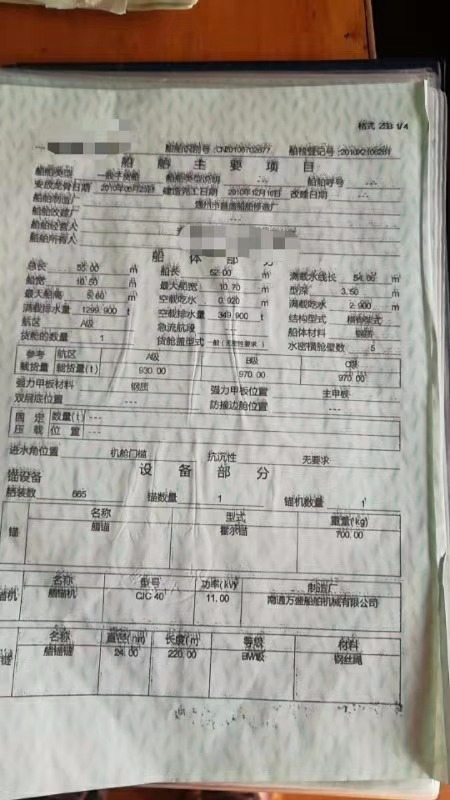 格式 2CB 1/4
船舶识别号:CN20100702677 船检登记号:
船舶主要项目
船舶类型 一般干货船 船舶呼号 ---
安放龙骨日期 2010年06月29日 建造完工日期 2010年12月16日 改建日期
船舶制造厂
船舶改建厂 ---
船舶经营人
船舶所有人
船体部分
总长 55.00 m 船长 52.00 m 满载水线长 54.06 m
船宽 10.50 m 最大船宽 10.70 m 型深 3.50 m
最大船高 m 空载吃水 0.920 m 满载吃水 2.900 m
满载排水量 1299.900 t 空载排水量 349.900 t 结构型式 横骨架式
航区 A级 急流航段 --- 船体材料 钢质
货舱的数量 1 货舱盖型式 一般(无密性要求) 水密横舱壁数 5
参考 航区 A级 B级 C级
载货量 载货量(t) 930.00 970.00 970.00
强力甲板材料 钢质 强力甲板位置 主甲板
双层底位置 --- 防撞边舱位置 ---
固定 数量(t) ---
压载 位置 ---
进水角位置 机舱门槛 抗沉性 无要求
设备部分
锚设备
舾装数 665 锚数量 1 锚机数量 1
名称 型式 重量(kg)
锚 艏锚 霍尔锚 700.00
名称 型号 功率(kw) 制造厂
锚机 艏锚机 CJC 40 11.00 南通万盛船舶机械有限公司
名称 直径(mm) 长度(m) 等级 材料
艏锚链 24.00 220.00 钢丝绳